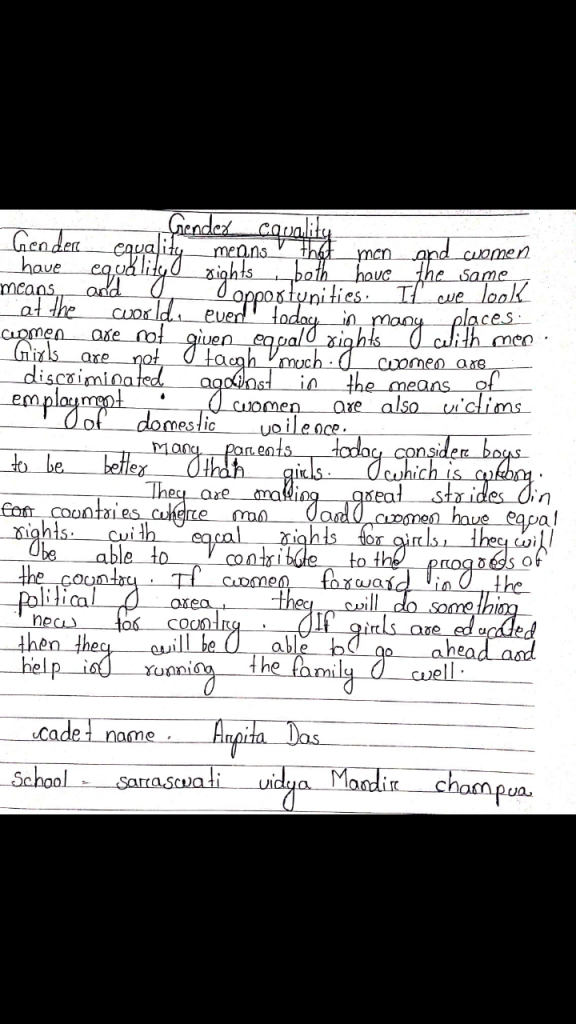 Gender equality
Gender equality means that men and women
have equality rights, both have the same
means and opportunities. If we look
at the world, even today in many places.
women are not given eqcal rights with men.
Girls are not taugh much. women are
discriminated against in the means of
employment. women are also victims
of domestic voilence.
many parents today consider boys
to be better than girls. which is wrong.
They are making great strides in
countries where man and women have eqcal
rights. with eqcal rights for girls, they will
be able to contribute to the progress of
the country. If women forward in the
political area, they will do something
new for country. If girls are educated
then they will be able to go ahead and
help in running the family well.
cadet name. Arpita Das
School - sarraswati vidya Mandir champua